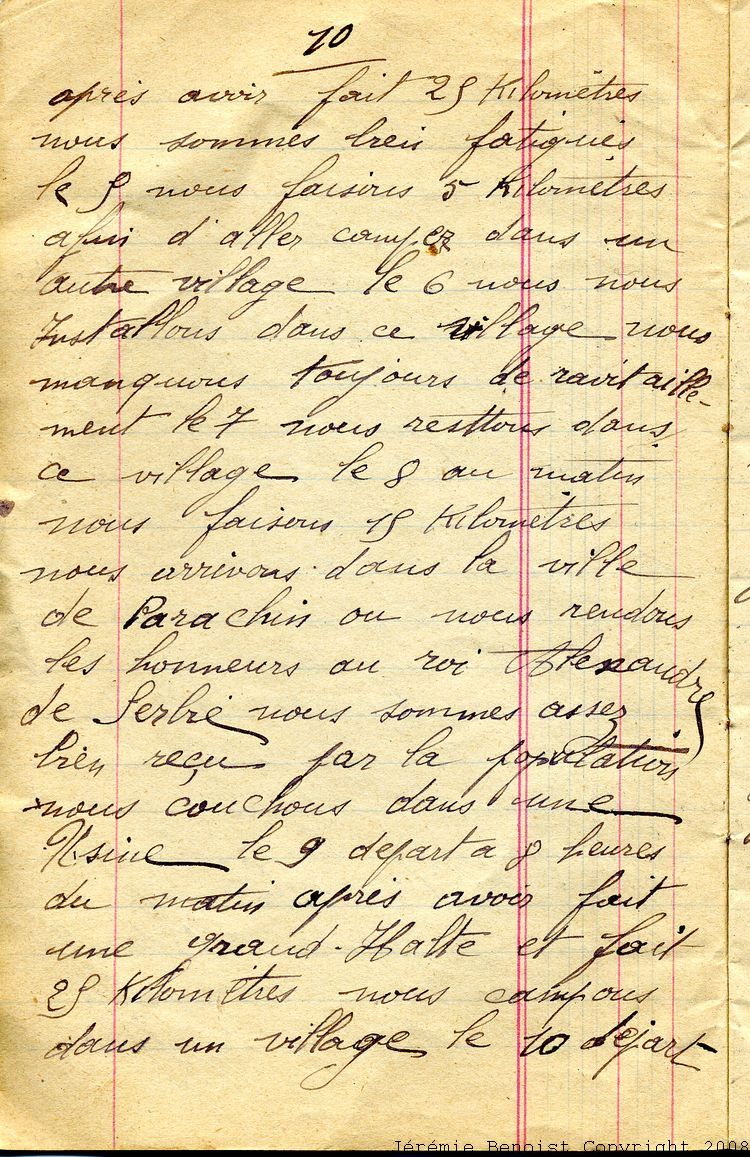 10
après avoir fait 25 Kilomètres
nous sommes bien fatigués
le 5 nous faisons 5 Kilomètres
afin d'aller camper dans un
autre village le 6 nous nous
Installons dans ce village nous
manquons toujours de ravitaille-
ment le 7 nous resttons dans
ce village le 8 au matin
nous faisons 15 Kilomètres
nous arrivons dans la ville
de Parachin ou nous rendons
les honneurs au roi Alexandre
de Serbie nous sommes assez
bien reçu par la population
nous couchons dans une
Usine le 9 depart a 8 heures
du matin après avoir fait
une grand-Halte et fait
25 Kilomètres nous campons
dans un village le 10 départ
Jérémie Benoist Copyright 2008